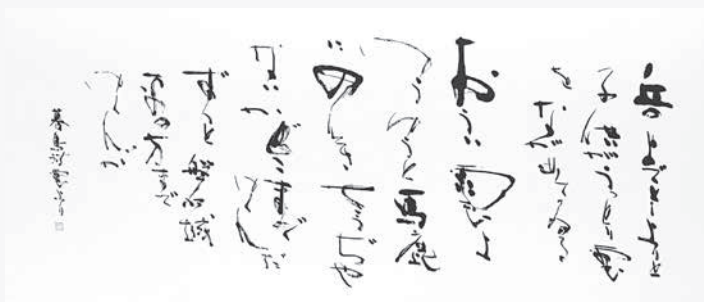 丘の上でとしよりと
こどもとうつとりと雲
をながめてゐる
おうい雲よ
ゆうゆうと馬鹿
にのんきさうぢや
ないかどこまでゆくんだ
ずつと磐城
平の方まで
ゆくんか
暮鳥詩